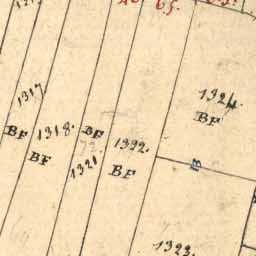 65.
1317
BF
1318.
BF
BF
72.
1321
1322.
BF
1324.
BF
1323.